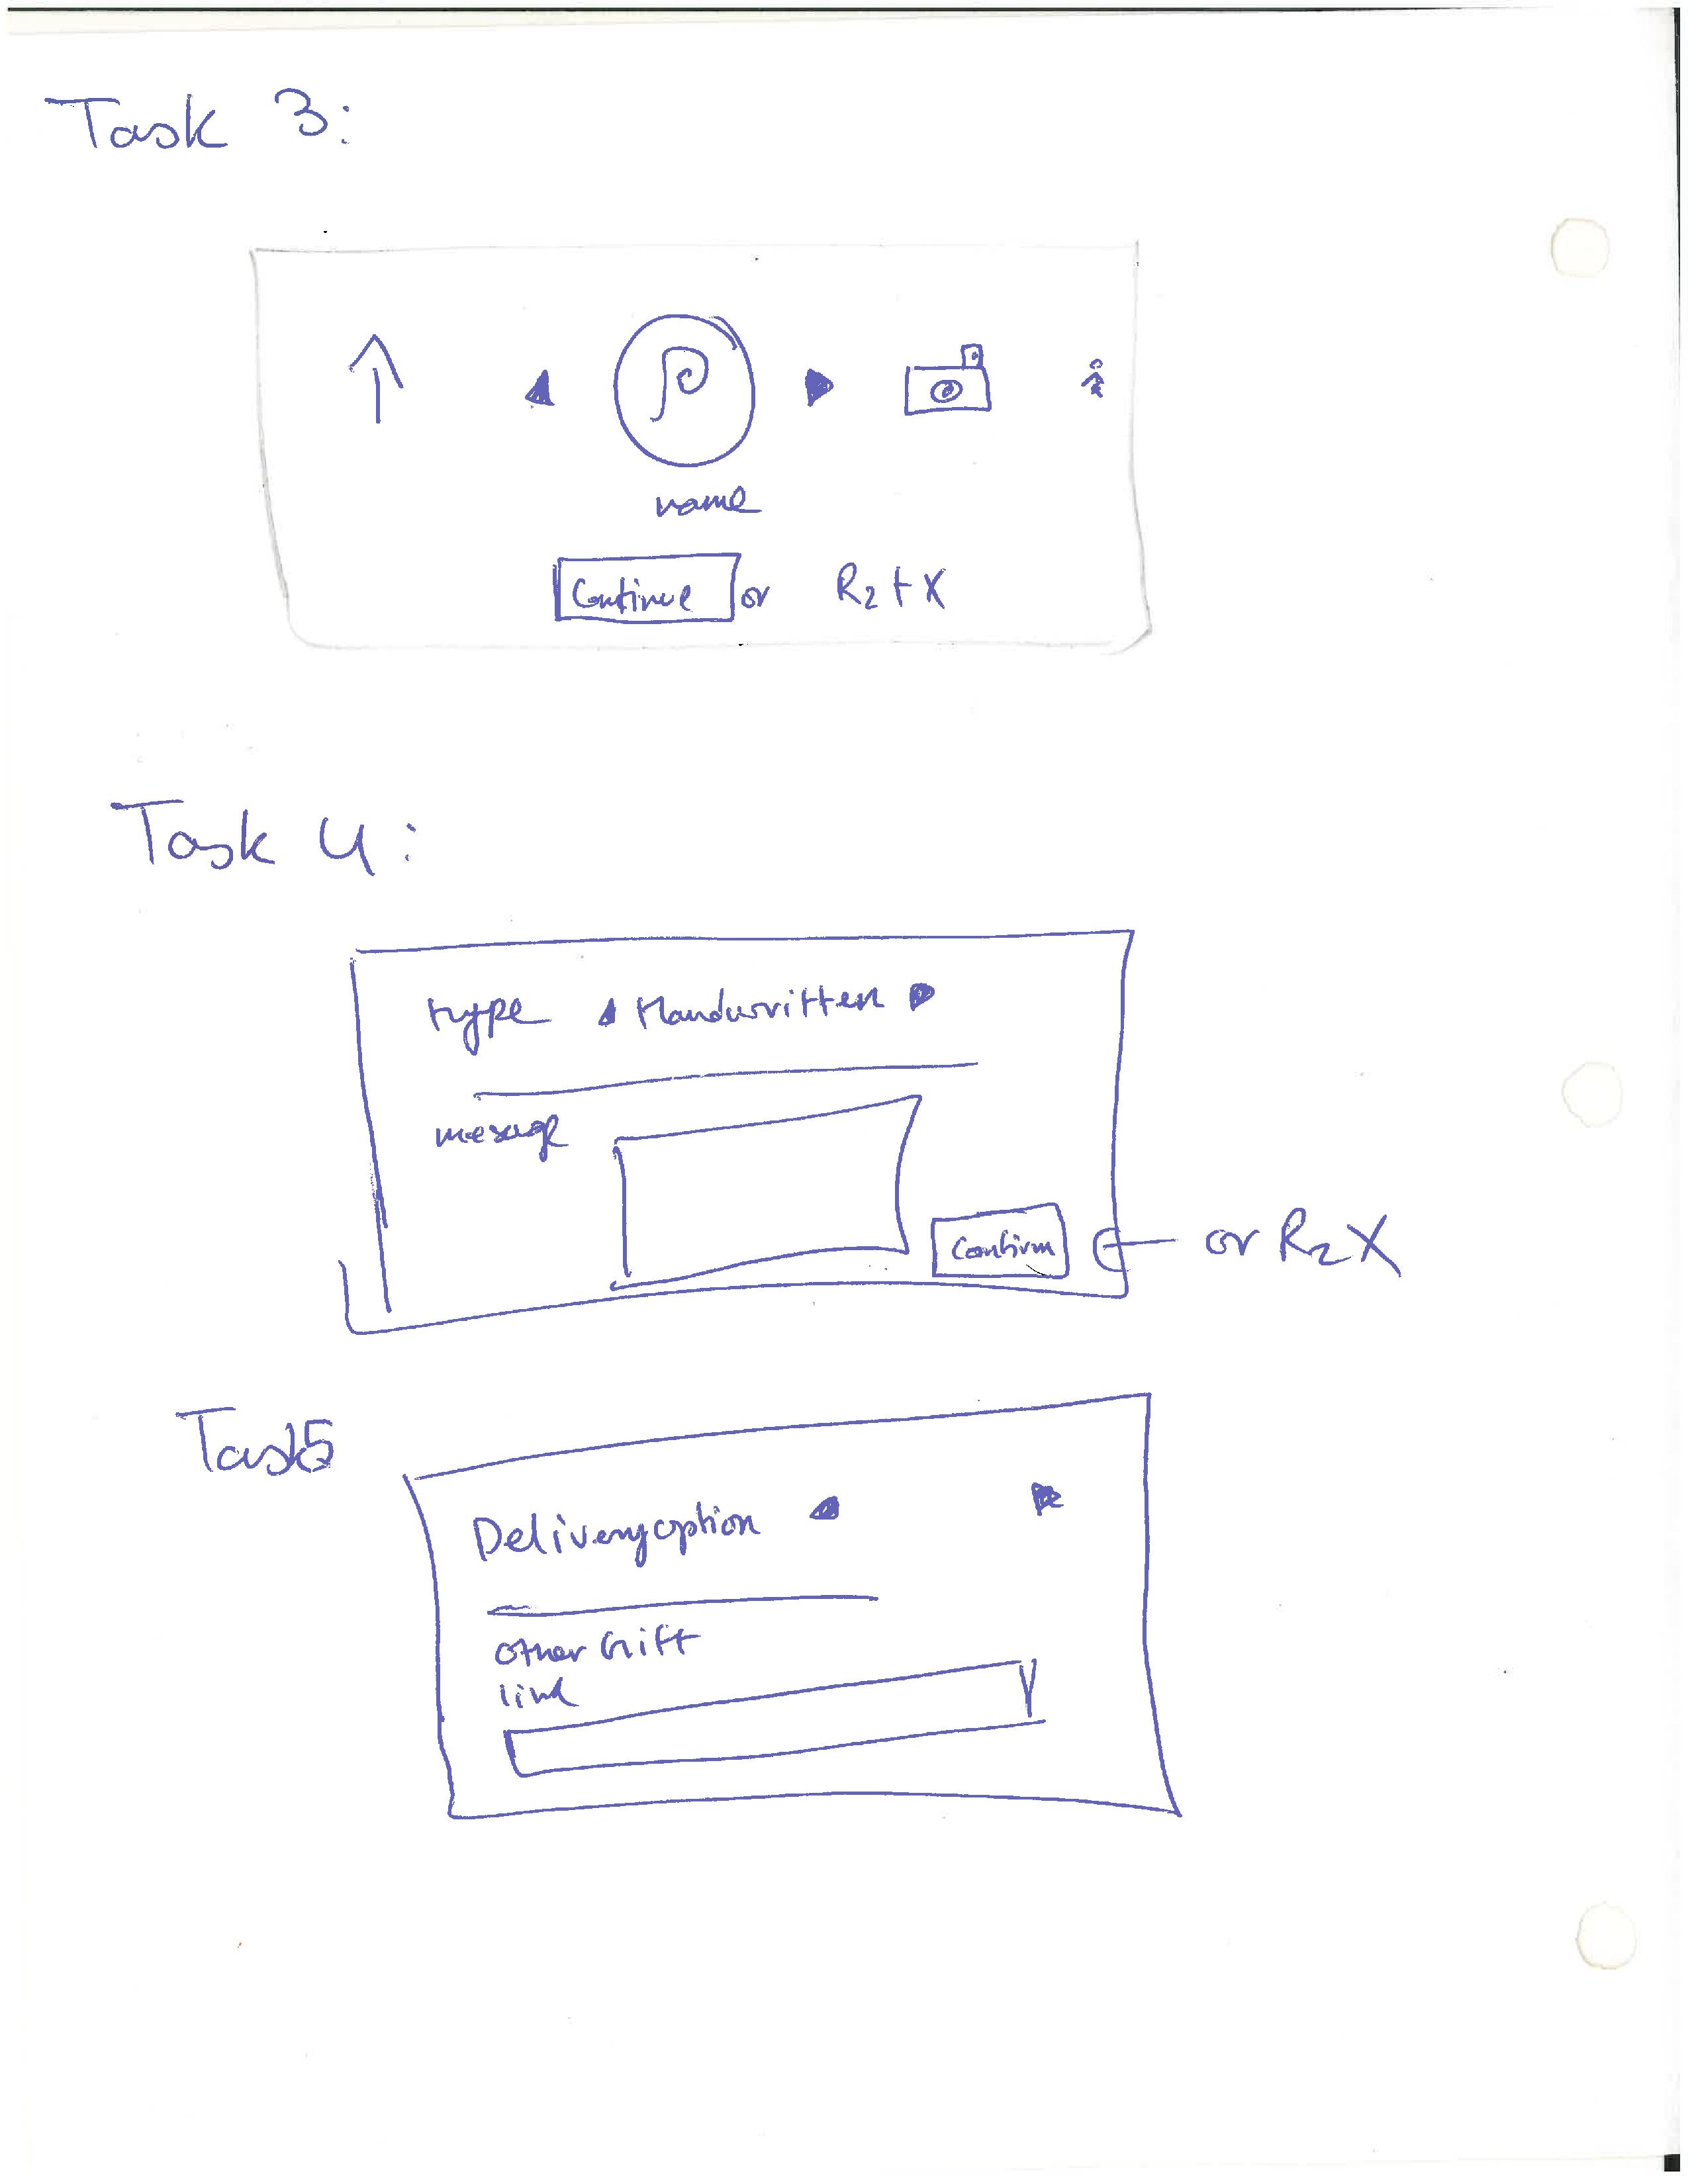 Task 3:
name
Continue or R2 + X
Task 4:
type Handwritten
message
Confirm or R2 X
Task5
Delivery option
other Gift
link